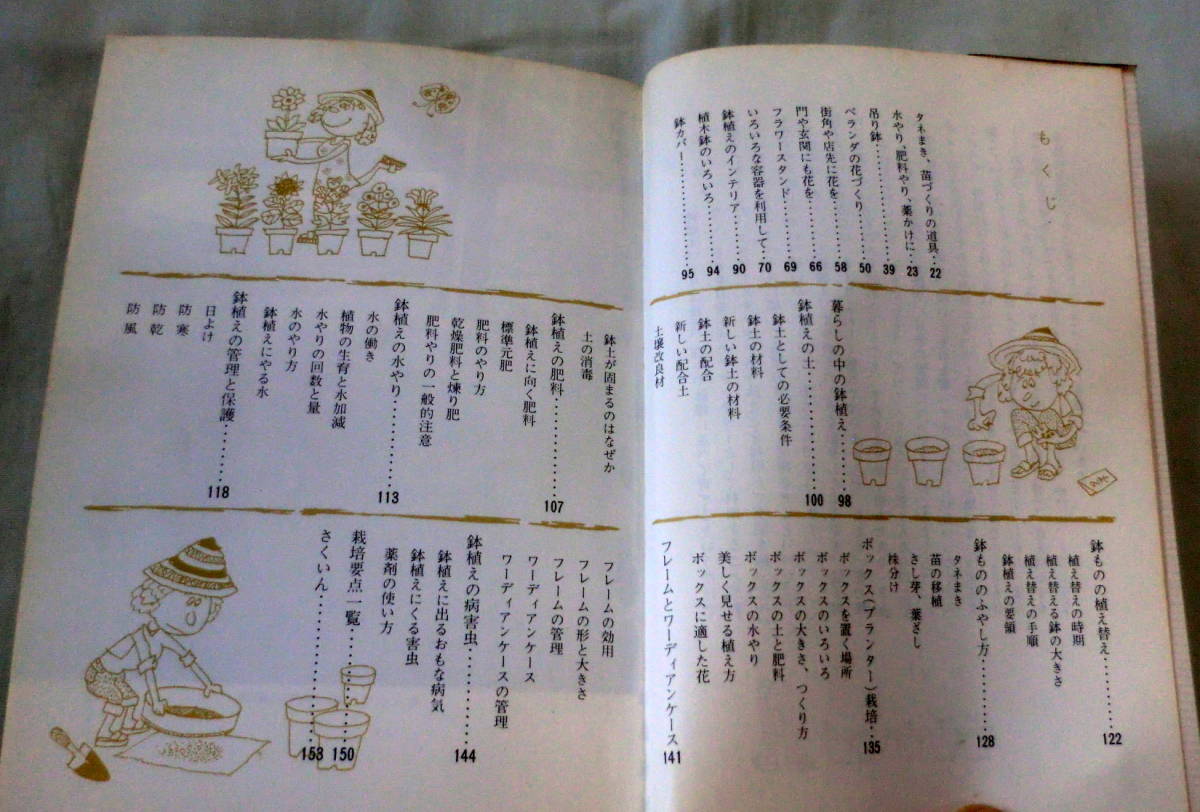 もくじ
タネまき、苗づくりの道具…22
水やり、肥料やり、薬かけに…23
吊り鉢…………39
ベランダの花づくり……50
街角や店先に花を……58
門や玄関にも花を……66
フラワースタンド……69
いろいろな容器を利用して…70
鉢植えのインテリア……90
植木鉢のいろいろ……94
鉢カバー……95
暮らしの中の鉢植え……98
鉢植えの土…………100
鉢土としての必要条件
鉢土の材料
新しい鉢土の材料
鉢土の配合
新しい配合土
土壌改良材
鉢土が固まるのはなぜか
土の消毒
鉢植えの肥料…………107
鉢植えに向く肥料
標準元肥
肥料のやり方
乾燥肥料と煉り肥
肥料やりの一般的注意
鉢植えの水やり…………113
水の働き
植物の生育と水加減
水やりの回数と量
水のやり方
鉢植えにやる水
鉢植えの管理と保護……118
日よけ
防寒
防乾
防風
鉢ものの植え替え……122
植え替えの時期
植え替える鉢の大きさ
植え替えの手順
鉢植えの要領
鉢もののふやし方……128
タネまき
苗の移植
さし芽、葉ざし
株分け
ボックス(プランター)栽培…135
ボックスを置く場所
ボックスのいろいろ
ボックスの大きさ、つくり方
ボックスの土と肥料
ボックスの水やり
美しく見せる植え方
ボックスに適した花
フレームとワーディアンケース 141
フレームの効用
フレームの形と大きさ
フレームの管理
ワーディアンケース
ワーディアンケースの管理
鉢植えの病害虫……144
鉢植えに出るおもな病気
鉢植えにくる害虫
薬剤の使い方
栽培要点一覧……150
さくいん…………153